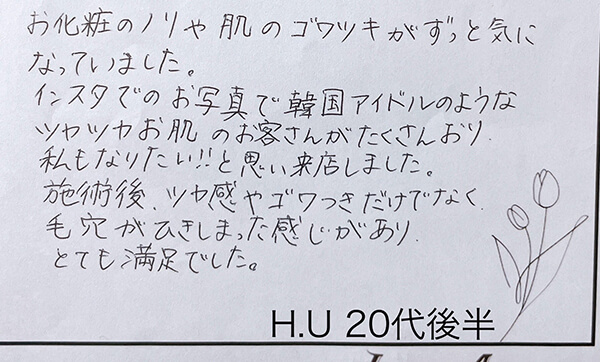 お化粧のノリや肌のゴワツキがずっと気に
なっていました。
インスタでのお写真で韓国アイドルのような
ツヤツヤお肌のお客さんがたくさんおり
私もなりたい!!と思い来店しました。
施術後、ツヤ感やゴワつきだけでなく
毛穴がひきしまった感じがあり
とても満足でした。
H.U 20代後半